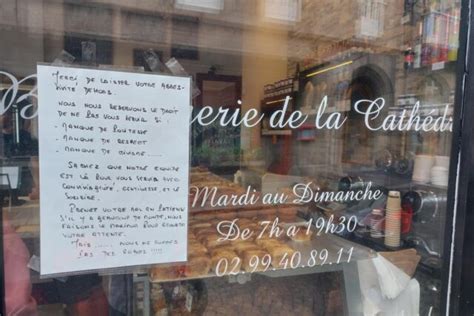 Merci de laisser votre agres-
sivité dehors.
Nous nous reservons le droit
de ne pas vous servir si :
- Manque de politesse
- Manque de respect
- Manque de
Sachez que notre equipe
est là pour vous servir avec
convivialité, gentillesse et le
sourire.
Prenez votre mal en patience
s'il y a beaucoup de monde, nous
faisons le maximum pour écourter
votre attente.
Mais ...... nous ne sommes
pas des robots !!!!!
B erie de la Cathéd
Mardi au Dimanche
De 7h a 19h30
02.99.40.89.11